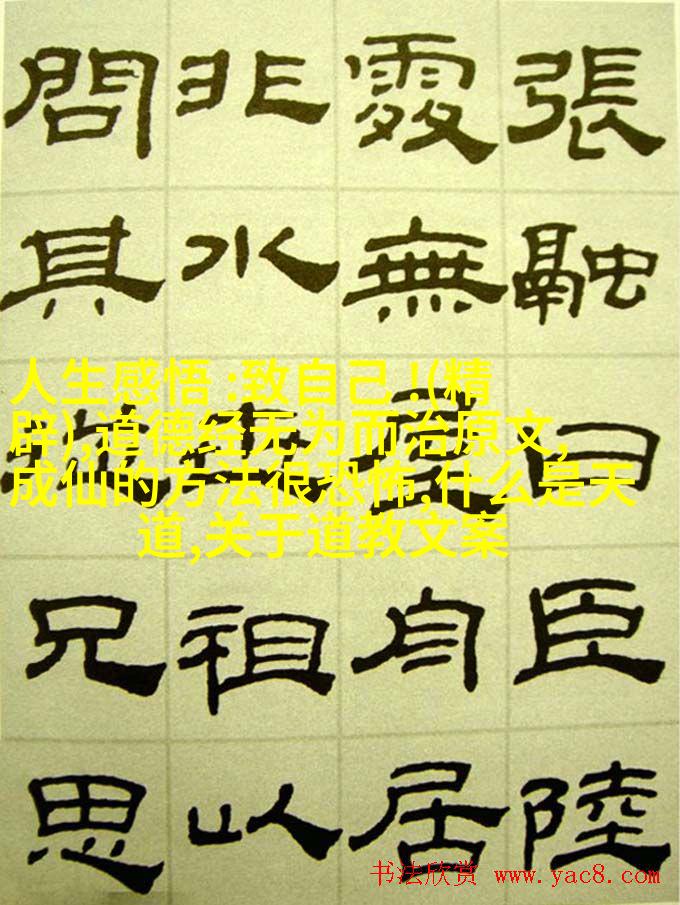 張融曰臣陸
處無屋舟居
非水祖以
問其兄思
人生感悟 :致自己 !(精
辟),道德经无为而治原文,
成仙的方法很恐怖.什么是天
道,关于道教文案
书法欣赏 www.yac8.com